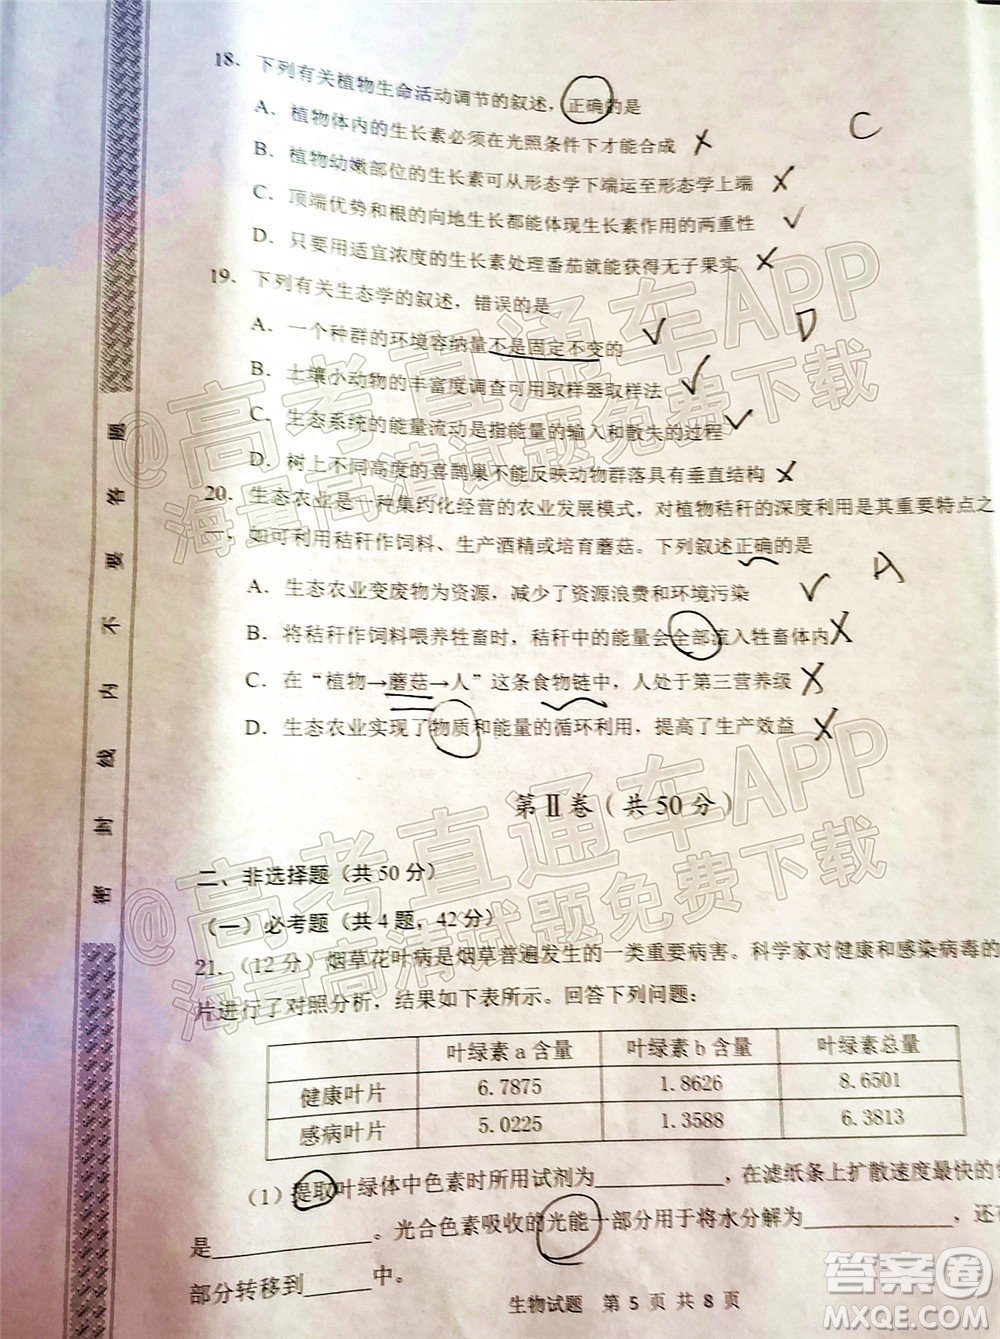 18. 下列有关植物生命活动调节的叙述，正确的是
C
A. 植物体内的生长素必须在光照条件下才能合成 ×
B. 植物幼嫩部位的生长素可从形态学下端运至形态学上端 ×
C. 顶端优势和根的向地生长都能体现生长素作用的两重性 √
D. 只要用适宜浓度的生长素处理番茄就能获得无子果实 ×
19. 下列有关生态学的叙述，错误的是
D
A. 一个种群的环境容纳量不是固定不变的 √
B. 土壤小动物的丰富度调查可用取样器取样法 √
C. 生态系统的能量流动是指能量的输入和散失的过程 √
D. 树上不同高度的喜鹊巢不能反映动物群落具有垂直结构 ×
20. 生态农业是一种集约化经营的农业发展模式，对植物秸秆的深度利用是其重要特点之
一，如可利用秸秆作饲料、生产酒精或培育蘑菇。下列叙述正确的是
A
A. 生态农业变废物为资源，减少了资源浪费和环境污染 √
B. 将秸秆作饲料喂养牲畜时，秸秆中的能量会全部流入牲畜体内 ×
C. 在“植物→蘑菇→人”这条食物链中，人处于第三营养级 ×
D. 生态农业实现了物质和能量的循环利用，提高了生产效益 ×
第Ⅱ卷（共50分）
二、非选择题（共50分）
（一）必考题（共4题，42分）
21.（12分）烟草花叶病是烟草普遍发生的一类重要病害。科学家对健康和感染病毒的
片进行了对照分析，结果如下表所示。回答下列问题：
叶绿素a含量 叶绿素b含量 叶绿素总量
健康叶片 6.7875 1.8626 8.6501
感病叶片 5.0225 1.3588 6.3813
（1）提取叶绿体中色素时所用试剂为__________，在滤纸条上扩散速度最快的
是__________。光合色素吸收的光能一部分用于将水分解为__________，还有
部分转移到_____中。
生物试题 第5页共8页
密封线内不要答题
@高考直通车APP
海量高清试题免费下载
@高考直通车APP
海量高清试题免费下载
答案圈
MXQE.COM